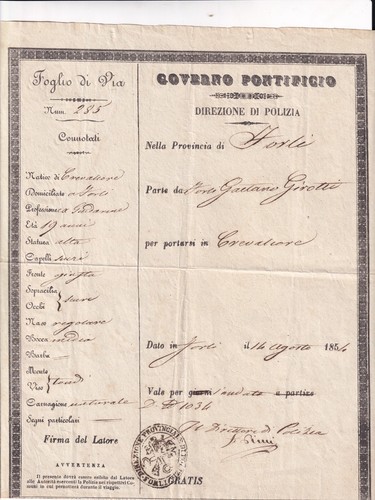 Foglio di Via
Num. 285
Connotati
Nativo di Crevalcore
Domiciliato a Forlì
Professione
Età 19 anni
Statura alta
Capelli scuri
Fronte
Sopraciglia
Occhi } scuri
Naso regolare
Bocca media
Barba
Mento
Viso } tondi
Carnagione naturale
Segni particolari
Firma del Latore
AVVERTENZA
Il presente dovrà essere esibito dal Latore
alle Autorità esercenti la Polizia nei rispettivi Co-
muni in cui pernotterà durante il viaggio.
GOVERNO PONTIFICIO
DIREZIONE DI POLIZIA
Nella Provincia di Forlì
Parte da Forlì Gaetano Girotti
per portarsi in Crevalcore
Dato in Forlì il 14 Agosto 1854
Vale per giorni l'andata a partire
1034
Il Direttore di Polizia
GRATIS
DIREZIONE PROVINCIALE DI POLIZIA
FORLÌ